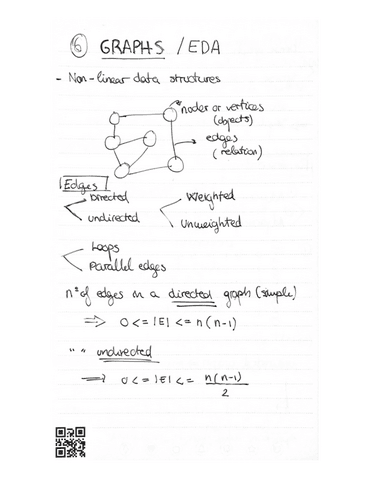 ⑥ GRAPHS / EDA
- Non-linear data structures
nodes or vertices
(objects)
edges
(relation)
Edges
Directed
undirected
Weighted
Unweighted
Loops
Parallel edges
nº of edges in a directed graph (simple)
=> 0 <= |E| <= n(n-1)
" " undirected
=> 0 <= |E| <= n(n-1)
2